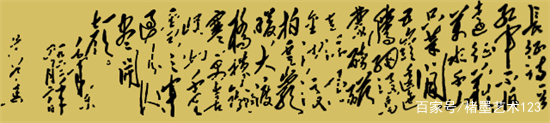 长征诗一首
红军不怕
远征难
万水千山
只等闲
五岭逶迤
腾细浪乌
蒙磅礴
走泥丸
金沙水
拍云崖
暖大渡
桥横铁索
寒更喜
岷山千里
雪三军
过后
尽开
颜
毛泽东
一九六二年
四月二十日
百家号/楮墨艺术123